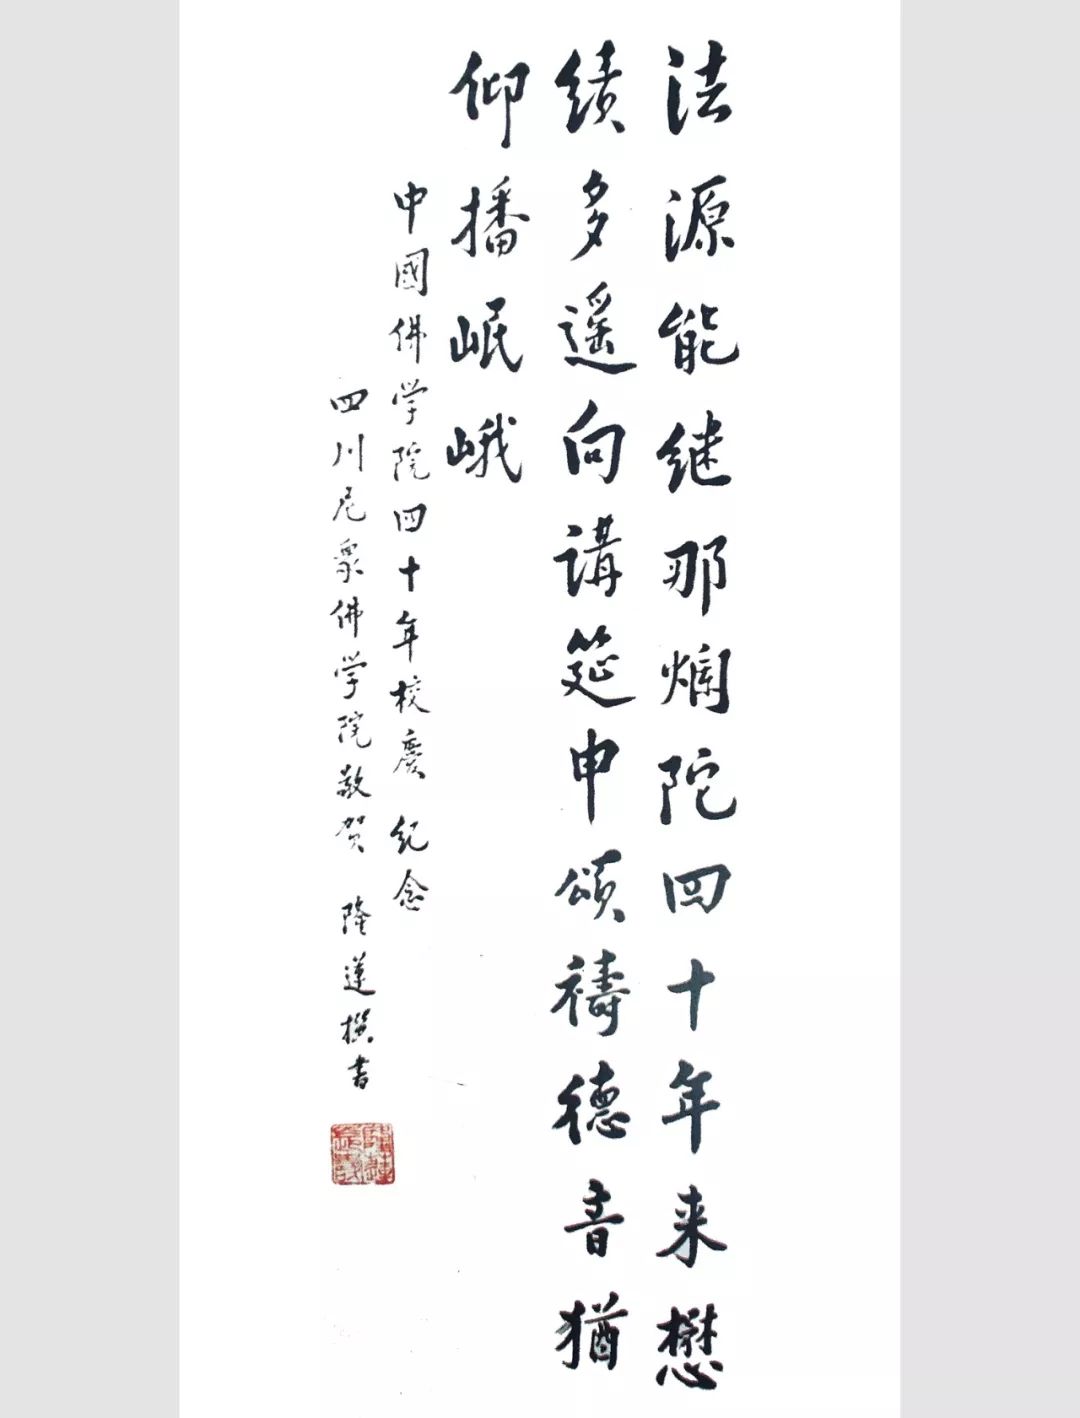 法源能继那烂陀四十年来懋
绩多遥向講筵申頌禱德音猶
仰播岷峨
中國佛学院四十年校慶 纪念
四川尼衆佛学院敬贺 隆莲撰書